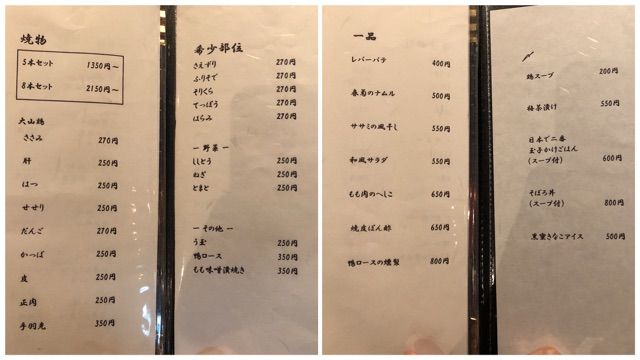 焼物
5本セット 1350円~
8本セット 2150円~
大山鶏
ささみ 270円
肝 250円
はつ 250円
せせり 250円
だんご 270円
かっぱ 250円
皮 250円
正肉 250円
手羽先 350円
希少部位
さえずり 270円
ふりそで 270円
そりくら 270円
てっぽう 270円
はらみ 270円
ー 野菜 ー
ししとう 250円
ねぎ 250円
とまと 250円
ー その他 ー
う玉 250円
鴨ロース 350円
もも味噌漬焼き 350円
一品
レバーパテ 400円
春菊のナムル 500円
ササミの風干し 550円
和風サラダ 550円
もも肉のへしこ 650円
焼皮ぽん酢 650円
鴨ロースの燻製 800円
〆
鶏スープ 200円
梅茶漬け 550円
日本で二番
玉子かけごはん
(スープ付) 600円
そぼろ丼
(スープ付) 800円
黒蜜きなこアイス 500円